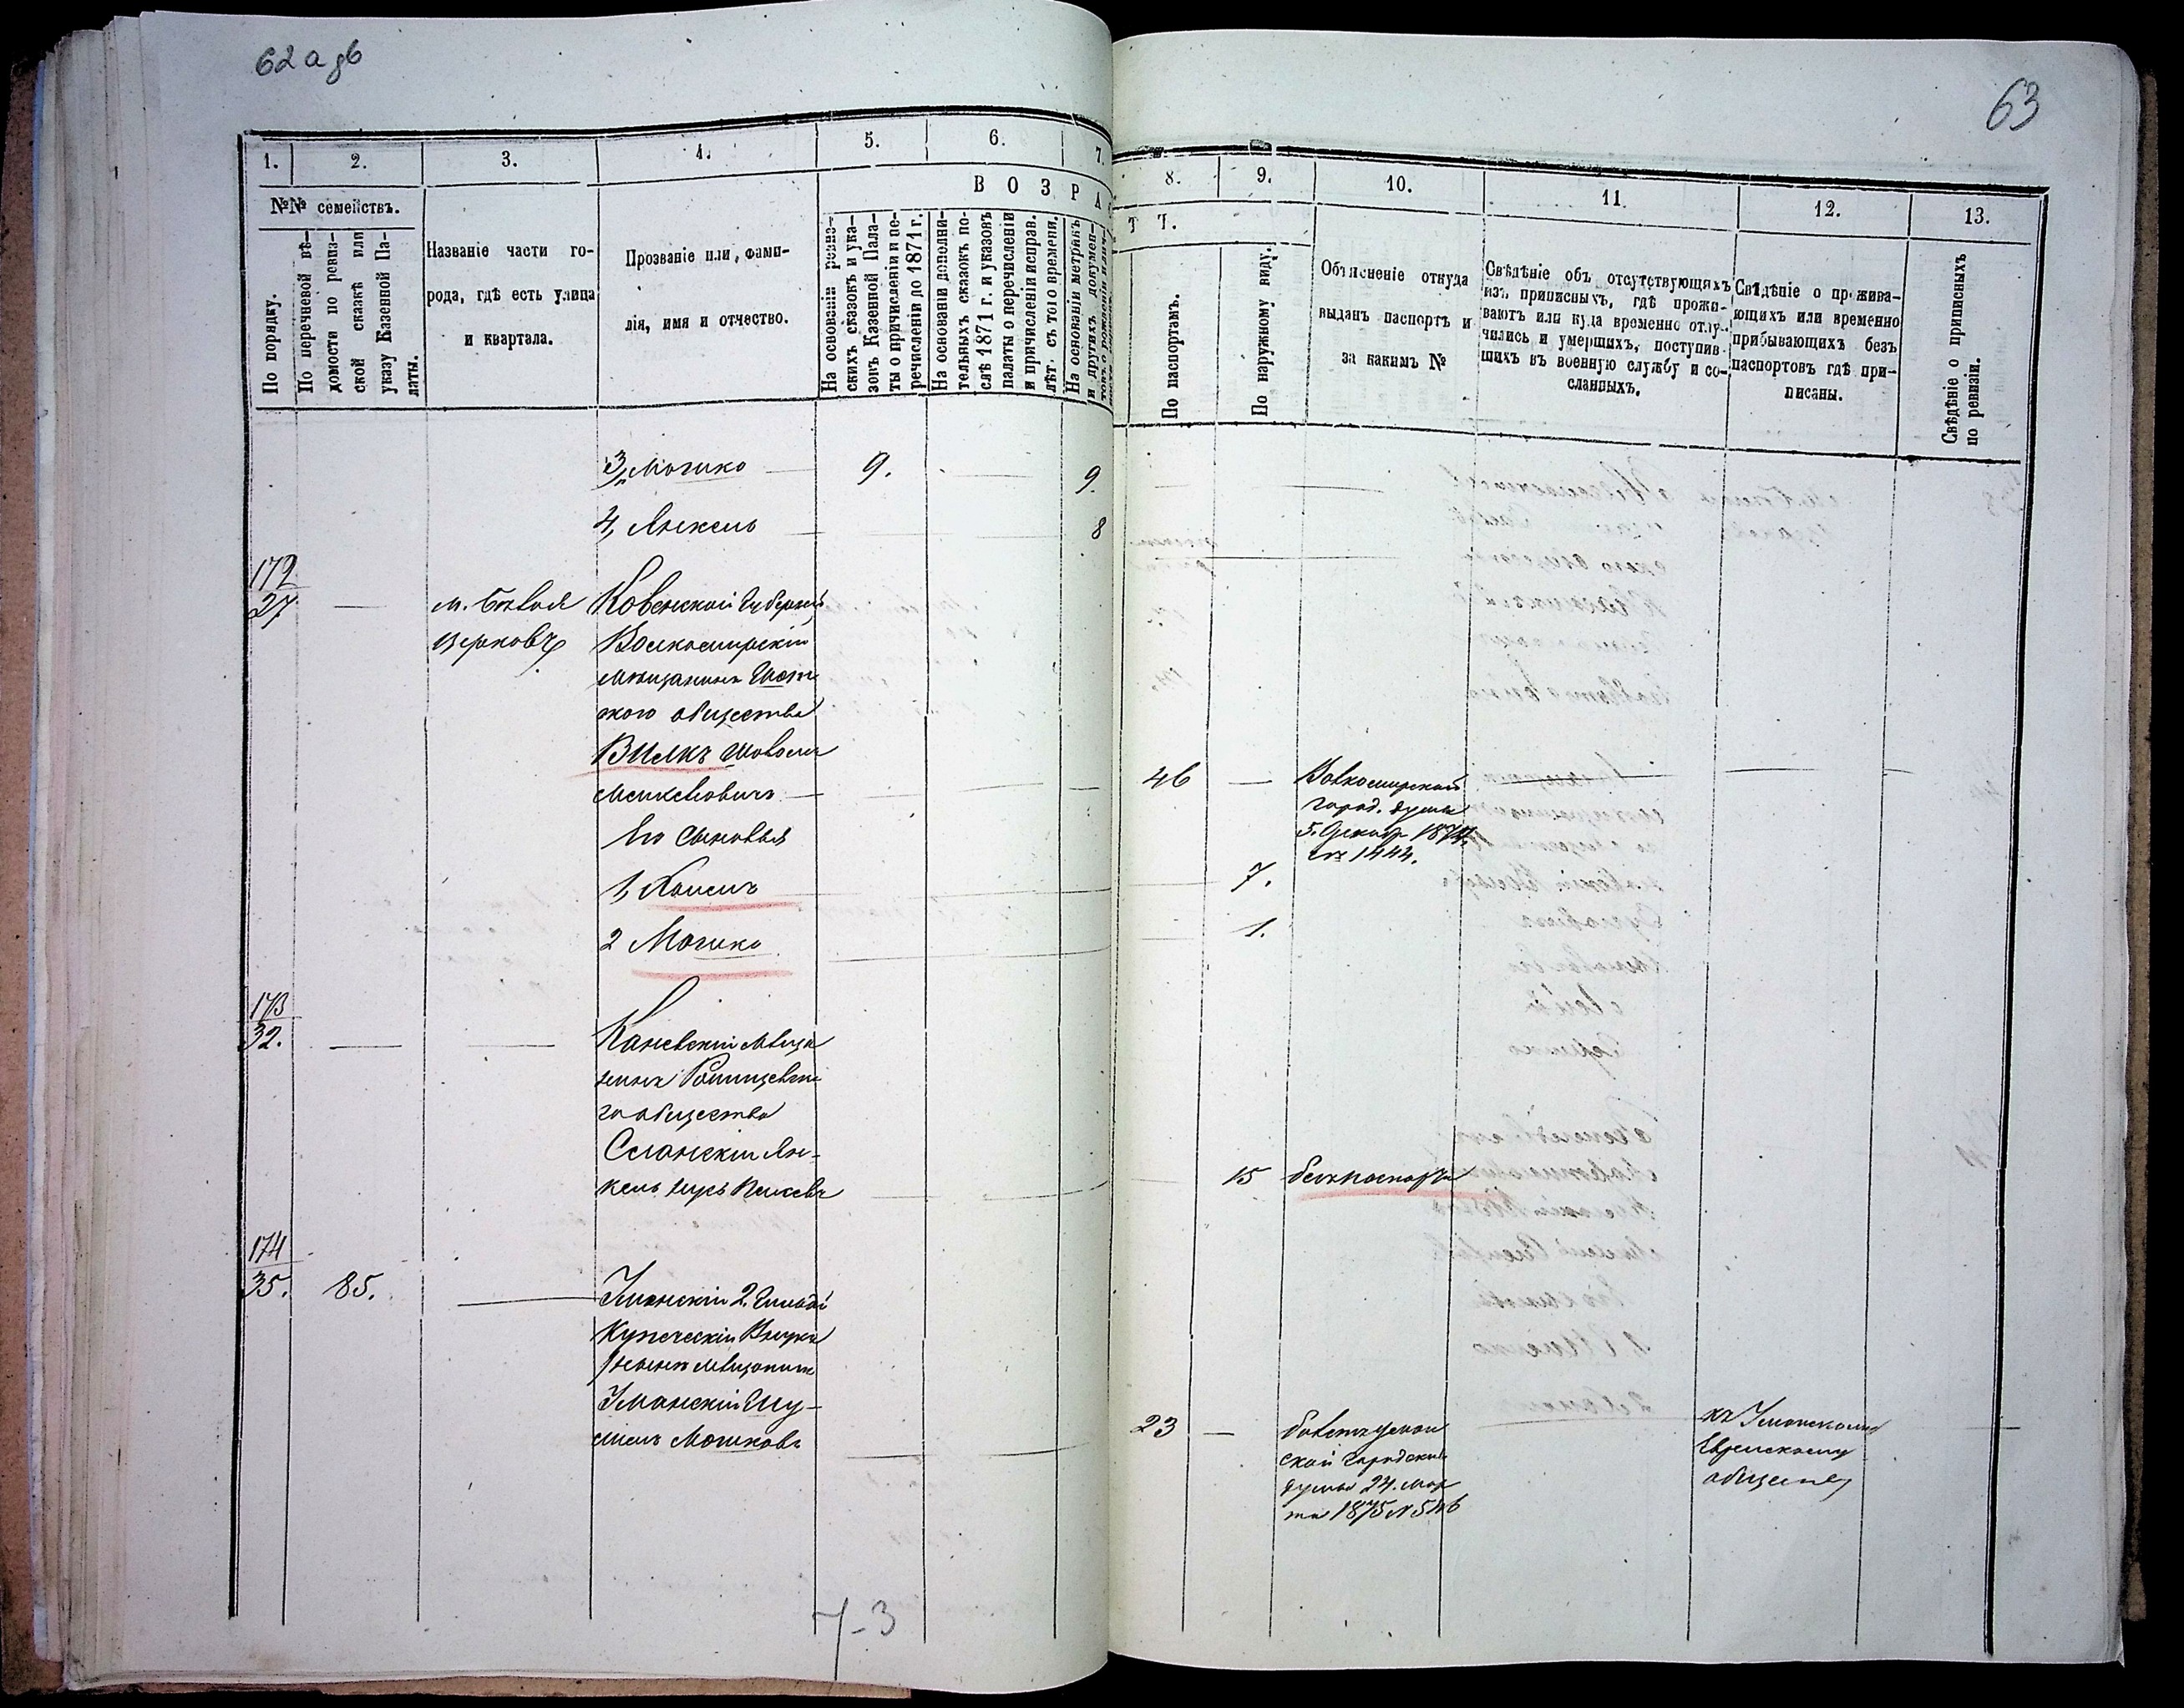 62 а зв
63
1.
2.
3.
4.
5.
6.
7.
8.
9.
10.
11.
12.
13.
№№ семействъ.
По порядку.
По перечневой вѣ-
домости по ревиз-
ской сказкѣ или
указу Казенной Па-
латы.
Названіе части го-
рода, гдѣ есть улица
и квартала.
Прозваніе или фами-
лія, имя и отчество.
В О З Р А
Т Ъ.
На основаніи ревиз-
скихъ сказокъ и ука-
зовъ Казенной Пала-
ты о причисленіи и пе-
речисленіи до 1871 г.
На основаніи дополни-
тельныхъ сказокъ по-
слѣ 1871 г. и указовъ
палаты о перечисленіи
и причисленіи исправ.
лѣт. съ того времени.
На основаніи метрикъ
и другихъ докумен-
По паспортамъ.
По наружному виду.
Объясненіе откуда
выданъ паспортъ и
за какимъ №
Свѣдѣніе объ отсутствующихъ
изъ приписныхъ, гдѣ прожи-
ваютъ или куда временно отлу-
чились и умершихъ, поступив-
шихъ въ военную службу и со-
сланныхъ.
Свѣдѣніе о прожива-
ющихъ или временно
прибывающихъ безъ
паспортовъ гдѣ при-
писаны.
Свѣдѣніе о приписныхъ
по ревизіи.
3, Мошко 9. 9.
4, Янкель 8
172
27 м. Бѣлая Ковенской Губерніи
Церковь Волкомирскій
мѣщанинъ
ского общества
Вилкъ Шовель
46 Волкомирской
город. думы
5. Декабр 1874.
за 1442.
Его сыновья
1, 7.
2 Мошко 1.
173
32. Каневскій мѣща
нинъ
го общества
Сланскій Ян-
кель 15 безъ паспорта
174
35. 85. Уманскій 2. Гильдіи
Купеческій Внукъ
нынѣ мѣщанинъ
Уманскій Шу-
Мошковъ 23 билетъ уман
ской городской
думы 24. мар
та 1875 №
къ Уманскому
Еврейскому
обществу
7-3